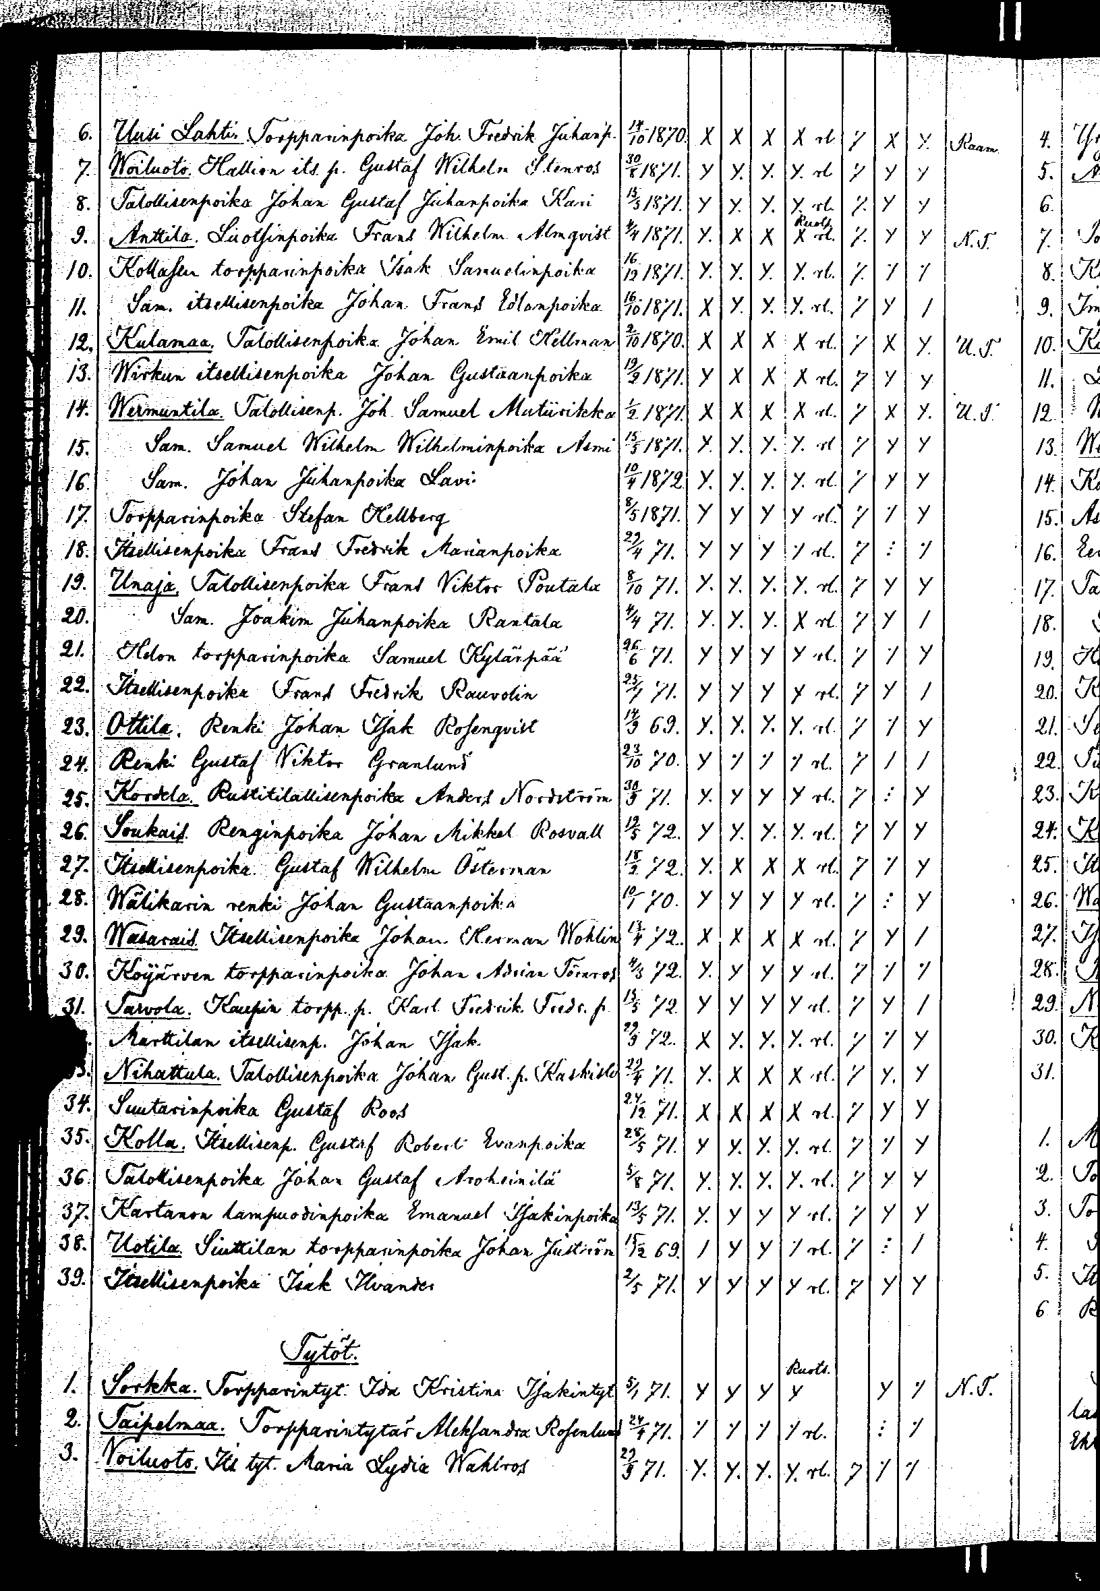 6. Uusi Lahti. Torpparinpoika Joh. Fredrik Juhanp. 14/10 1870. X X X X rl. 7 X Y. Raam. 4.
7. Woiluoto. Hallion its. p. Gustaf Wilhelm Stenros 30/8 1871. Y Y Y. Y. rl 7 Y Y 5.
8. Talollisenpoika Johan Gustaf Juhanpoika Kari 15/3 1871. Y Y. Y. Y. rl. 7. Y Y 6.
9. Anttila. Luotsinpoika Frans Wilhelm Almqvist 4/4 1871. Y. X X X Ruots. rl. 7. Y Y N.T. 7.
10. Kollasen torpparinpoika Isak Samuelinpoika 16/12 1871. Y. Y. Y. Y. rl. 7. 7 7 8. K
11. Sam. itsellisenpoika Johan Frans Edlanpoika 16/10 1871. X Y. Y. Y. rl. 7 Y / 9.
12. Kulamaa. Talollisenpoika Johan Emil Hellman 2/10 1870. X X X X rl. 7 X Y. U.T. 10.
13. Wirkun itsellisenpoika Johan Gustaanpoika 19/9 1871. Y X X X rl. 7 Y Y 11.
14. Wermuntila. Talollisenp. Joh. Samuel Mutiirikka 1/2 1871. X X X X rl. 7 X Y. U.T. 12.
15. Sam. Samuel Wilhelm Wilhelminpoika Asmi 15/5 1871. Y. Y. Y. Y. rl 7 Y Y 13.
16. Sam. Johan Juhanpoika Lavi 10/4 1872 Y. Y. Y. Y. rl. 7 Y Y 14.
17. Torpparinpoika Stefan Hellberg 8/5 1871. Y Y Y Y rl. 7 7 Y 15. As
18. Itsellisenpoika Frans Fredrik Marianpoika 29/4 71. Y Y Y 7 rl. 7 : 7 16.
19. Unaja. Talollisenpoika Frans Viktor Poutala 8/10 71. Y. Y. Y. Y. rl. 7 Y Y 17. Ta
20. Sam. Joakim Juhanpoika Rantala 4/4 71. Y. Y. Y. X rl. 7 Y / 18.
21. Helon torpparinpoika Samuel Kylänpää 26/6 71. Y Y Y Y rl. 7 7 Y 19. H
22. Itsellisenpoika Frans Fredrik Rauvolin 25/1 71. Y Y Y Y rl. 7 Y / 20. K
23. Ottila. Renki Johan Isak Rosenqvist 14/9 69. Y. Y. Y. Y. rl. 7 7 Y 21.
24. Renki Gustaf Viktor Granlund 23/10 70. Y 7 7 7 rl. 7 / / 22.
25. Kordela. Rustitilallisenpoika Anders Nordström 30/3 71. Y. Y Y Y rl. 7 : Y 23. K
26. Soukais. Renginpoika Johan Mikkel Rosvall 12/5 72. Y Y. Y. Y. rl. 7 Y Y 24. K
27. Itsellisenpoika Gustaf Wilhelm Österman 18/3 72. Y. X X X rl. 7 7 Y 25.
28. Wälikarin renki Johan Gustaanpoika 10/1 70. Y Y Y Y rl. 7 : Y 26. Wa
29. Wasarais. Itsellisenpoika Johan Herman Wohlin 13/4 72. X X X X rl. 7 Y / 27.
30. Koijärven torpparinpoika Johan Adrian Törnros 4/3 72. Y. Y Y Y rl. 7 7 7 28.
31. Tarvola. Kaupin torpp. p. Karl Fredrik Fredr. p. 15/5 72 Y Y Y Y rl. 7 Y / 29. N
Marttilan itsellisenp. Johan Isak. 22/3 72. X Y. Y. Y. rl. 7 7 Y 30. K
3. Nihattula. Talollisenpoika Johan Gust. p. Kaskisto 29/4 71. Y. X X X rl. 7 Y. Y 31.
34. Suutarinpoika Gustaf Roos 24/12 71. X X X X rl. 7 Y Y
35. Kolla. Itsellisenp. Gustaf Robert Evanpoika 28/5 71. Y Y. Y. Y. rl. 7 7 Y 1. M
36. Talollisenpoika Johan Gustaf Aroheinilä 5/8 71. Y. Y. Y. Y. rl. 7 Y Y 2. To
37. Kartanon lampuodinpoika Emanuel Isakinpoika 13/5 71. Y. Y Y Y rl. 7 Y Y 3. To
38. Uotila. Siuttilan torpparinpoika Johan Juström 15/12 69. / Y Y 7 rl. 7 : / 4.
39. Itsellisenpoika Isak Ilvander 2/5 71. Y Y Y Y rl. 7 Y Y 5.
6
Tytöt.
1. Sorkka. Torpparintyt. Ida Kristina Isakintyt 5/1 71. Y Y Y Y Ruots. Y 7 N.T.
2. Taipelmaa. Torpparintytär Aleksandra Rosenlund 24/4 71. 7 7 7 7 rl. : 7
3. Voiluoto. Its tyt. Maria Lydia Wahlros 29/9 71. Y. Y. Y. Y. rl. 7 7 7